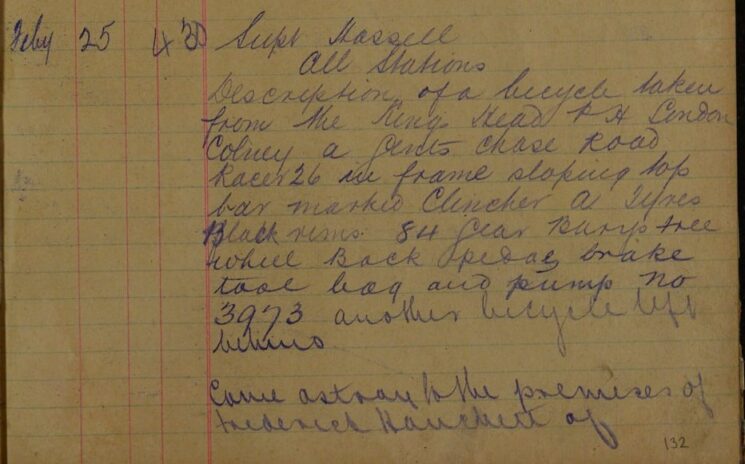 Feby 25 4 30 Supt Hassell
All Stations
Description of a bicycle taken
from the Kings Head P H London
Colney a Gents Chase Road
Racer 26 in frame sloping top
bar marked Clincher A Tyres
Black rims 84 Gear free
wheel Back pedal brake
tool bag and pump No
3973 another bicycle left
behind
Came astray to the premises of
Frederick Hanchett of
132